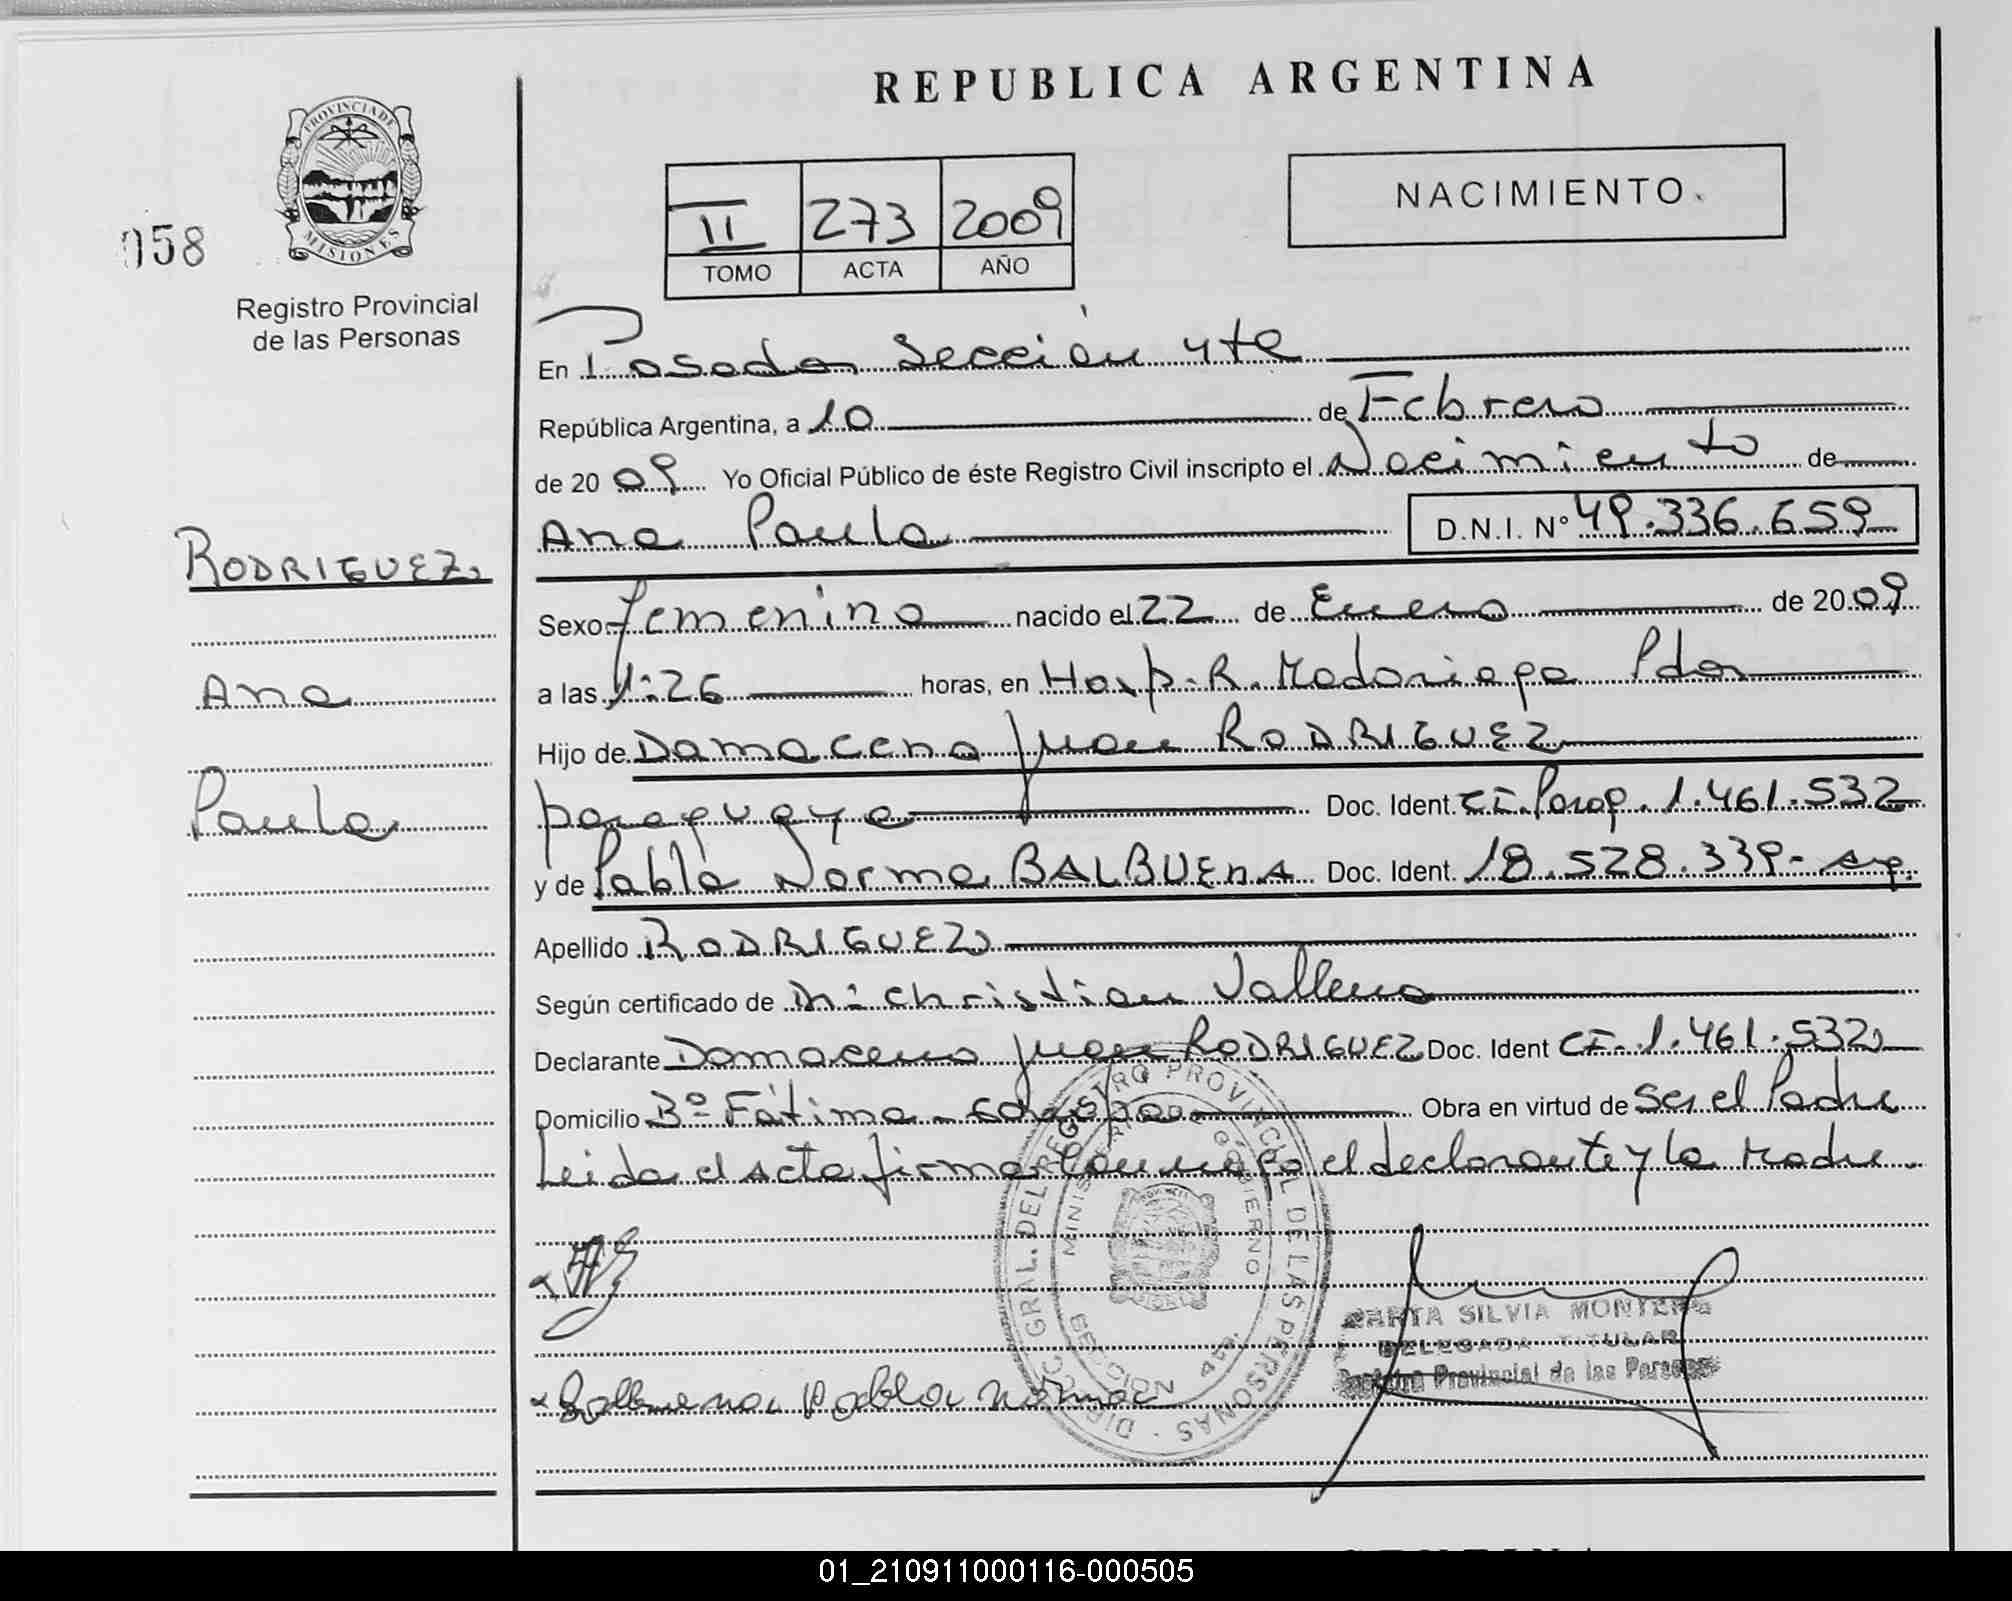 REPUBLICA ARGENTINA
PROVINCIA DE MISIONES
058
Registro Provincial
de las Personas
II 273 2009
TOMO ACTA AÑO
NACIMIENTO
En Posadas Sección 4ta
República Argentina, a 10 de Febrero
de 2009 Yo Oficial Público de éste Registro Civil inscripto el Nacimiento de
Ana Paula D.N.I. N° 49.336.659
RODRIGUEZ
Ana
Paula
Sexo femenino nacido el 22 de Enero de 2009
a las :26 horas, en Hosp. R. Madariaga Pdas
Hijo de Damaceno Juan RODRIGUEZ
paraguayo Doc. Ident. CI. Parag. 1.461.532
y de Pabla Norma BALBUENA Doc. Ident. 18.528.339 - arg.
Apellido RODRIGUEZ
Según certificado de Dr: Christian Vallejos
Declarante Damaceno Juan RODRIGUEZ Doc. Ident CI. 1.461.532
Domicilio B° Fátima - Garupá Obra en virtud de ser el Padre
Leida el acta firman conmigo el declarante y la Madre.
Balbuena Pabla Norma
DIREC. GRAL. DEL REGISTRO PROVINCIAL DE LAS PERSONAS
MINISTERIO DE GOBIERNO
SECCION 4ta.
MARTA SILVIA MONTERO
DELEGADA TITULAR
Registro Provincial de las Personas
01_210911000116-000505